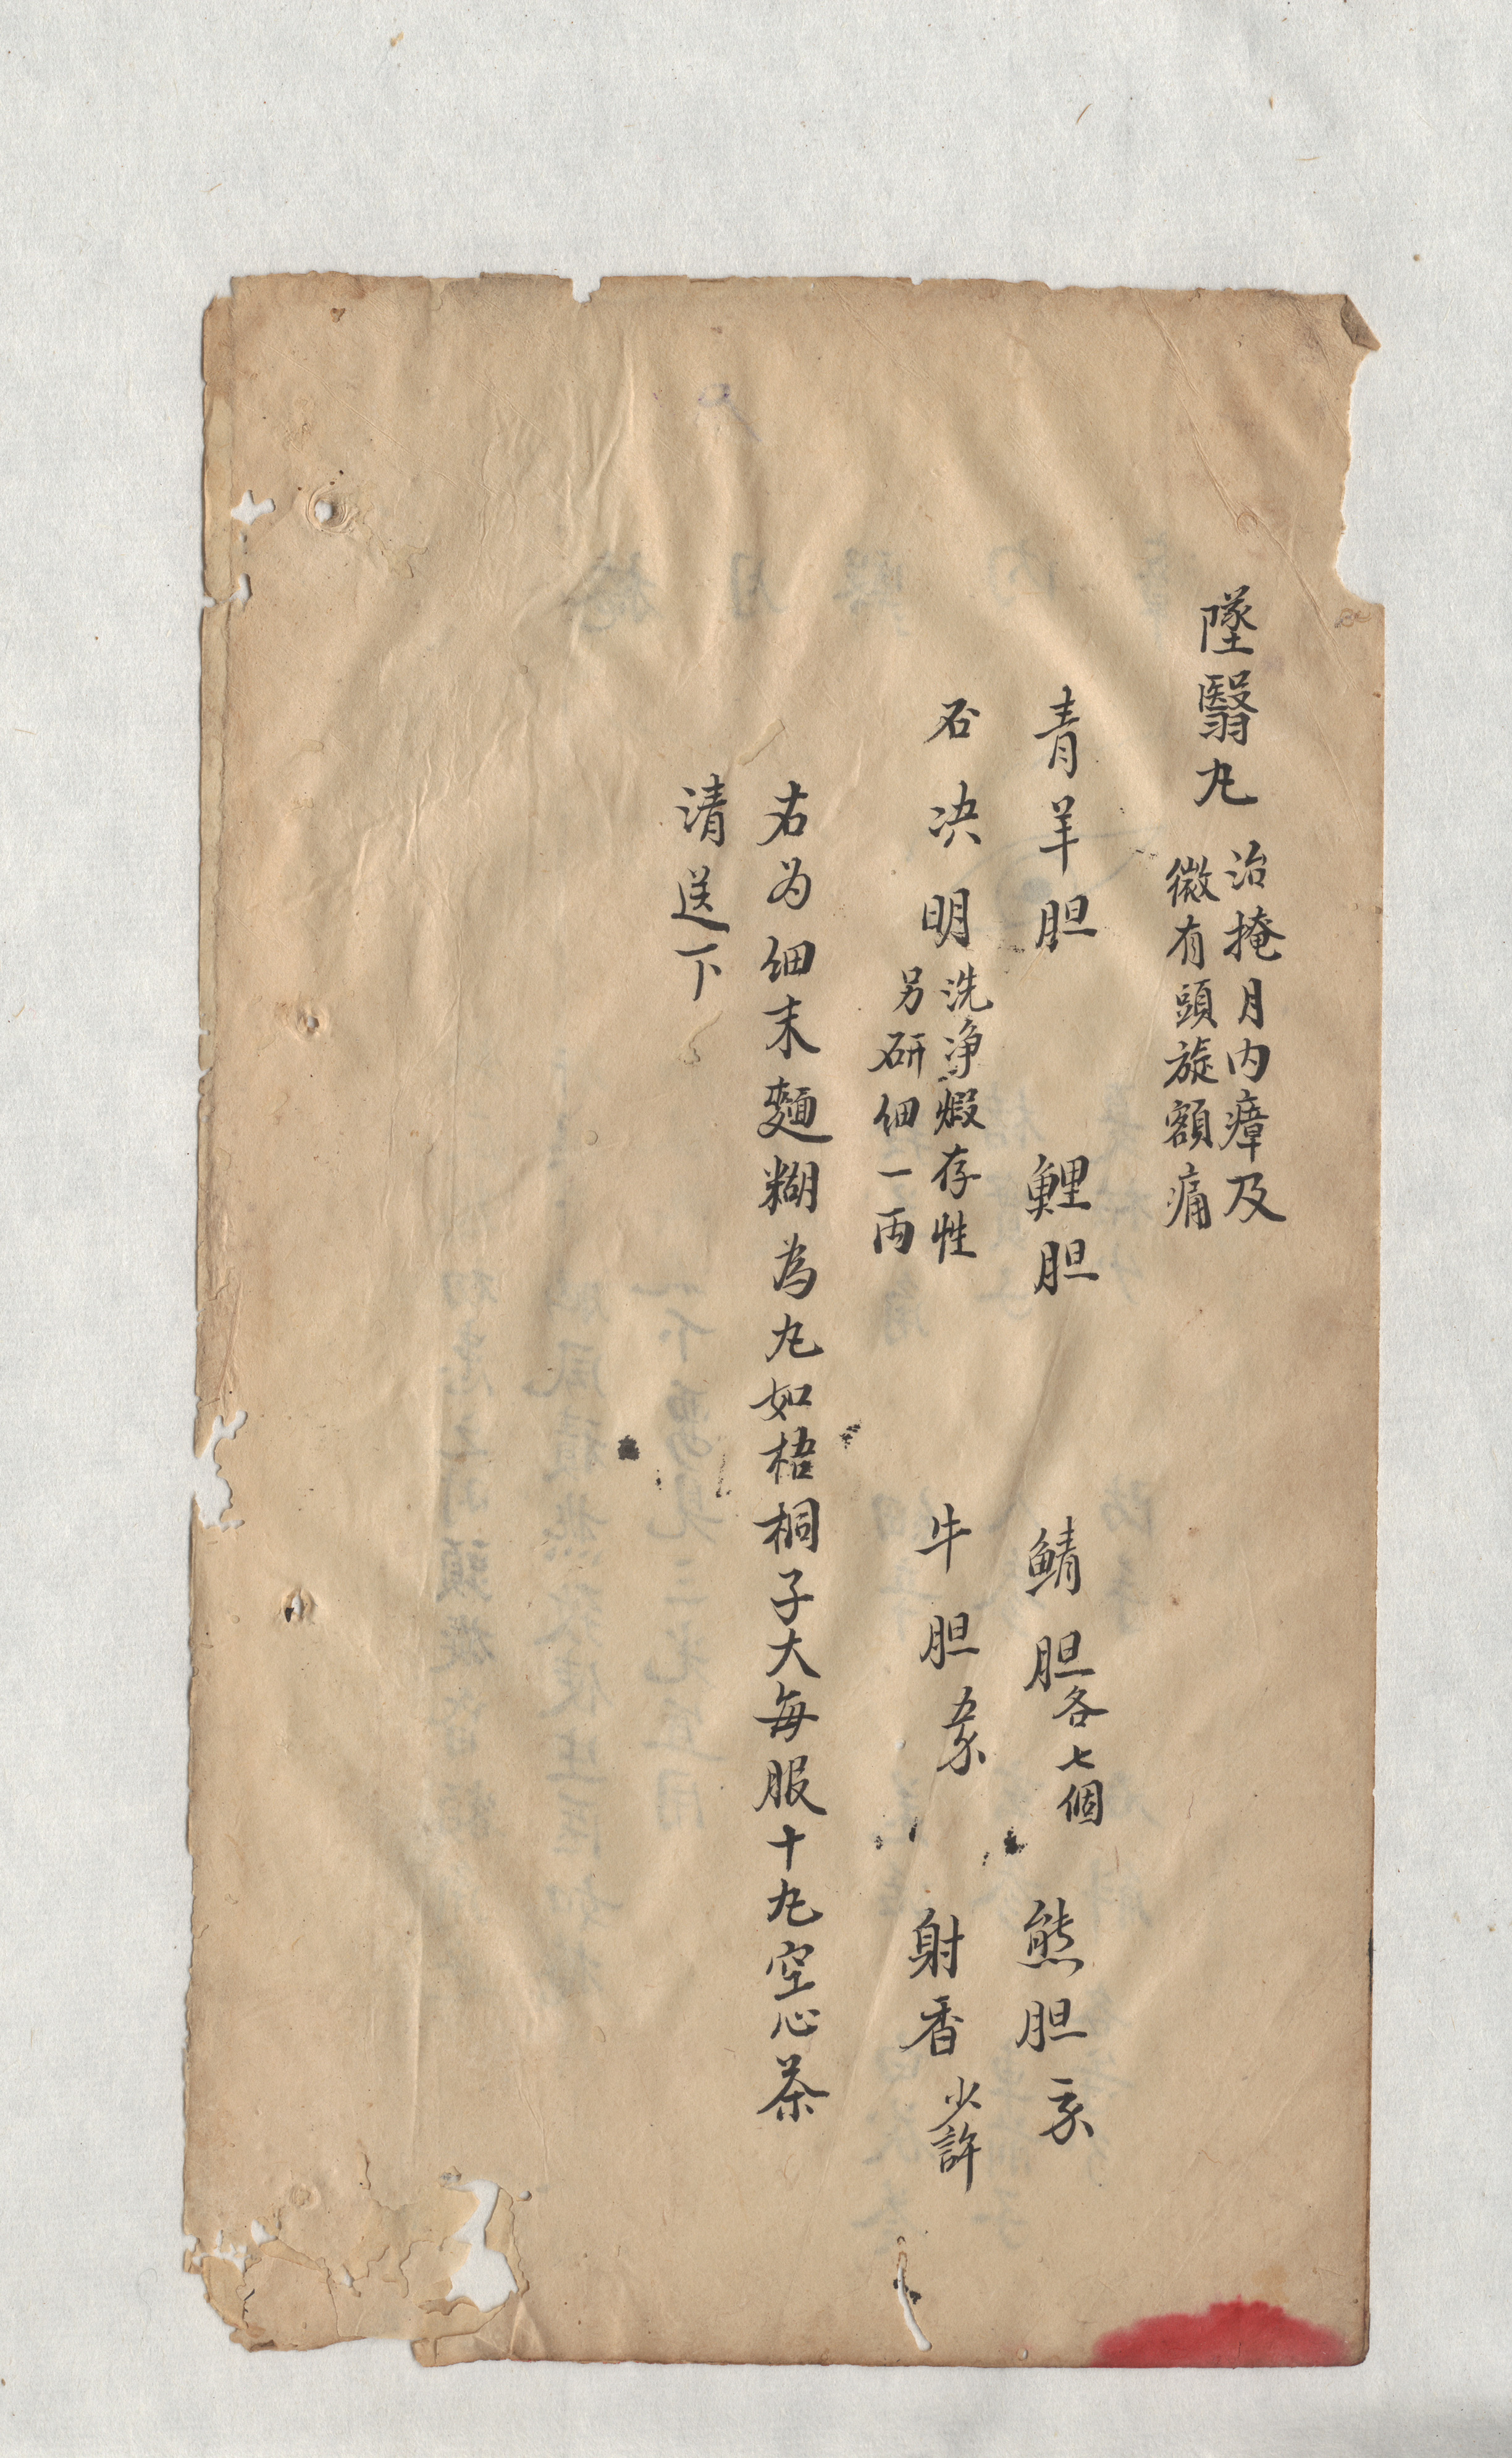 墜翳丸
治掩月内瘴及
微有頭旋額痛
青羊胆 鯉胆 鯖胆各七個 熊胆
石决明 洗净煅存性
另研細一两
牛胆 射香少許
右为细末麵糊為丸如梧桐子大每服十丸空心茶
清送下